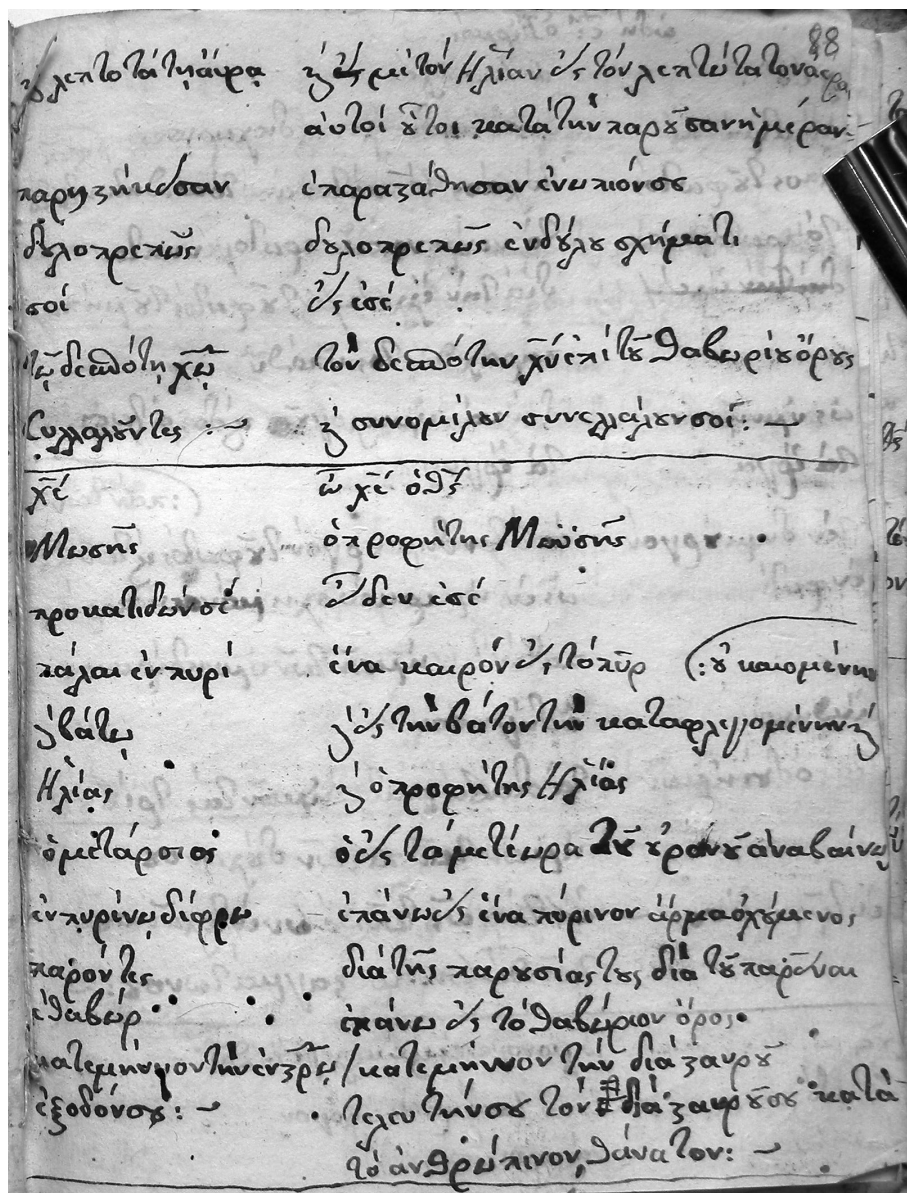 88
κ λεπτοτάτη αύρα κ εἰς με τὸν Ἠλίαν εἰς τὸν λεπτότατον ἀέρα
αὐτοὶ οὗτοι κατὰ τὴν παροῦσαν ἡμέραν:
παρειστήκεισαν ἐπαραστάθησαν ἐνώπιόν σου
δουλοπρεπῶς δουλοπρεπῶς ἐν δούλου σχήματι
σοὶ εἰς ἐσέ
τῷ δεσπότῃ χῷ τὸν δεσπότην χν ἐπὶ τοῦ Θαβωρίου ὄρους
Συλλαλοῦντες :~ κ συνομίλουν συνελλάλουν σοί: ~
χέ ὦ χέ ὁ θς
Μωσῆς ὁ προφήτης Μωϋσῆς
προκατιδών σε εἶδεν ἐσέ
πάλαι ἐν πυρὶ ἕνα καιρὸν εἰς τὸ πῦρ (: οὐ καιομένην
κ βάτῳ κ εἰς τὴν βάτον τὴν καταφλεγομένην κ
Ἠλίας κ ὁ προφήτης Ἠλίας
ὁ μετάρσιος ὁ εἰς τὰ μετέωρα τοῦ οὐρανοῦ ἀναβαίνων
ἐν πυρίνῳ δίφρῳ ἐπάνω εἰς ἕνα πύρινον ἅρμα ὀχούμενος
παρόντες διὰ τῆς παρουσίας τους διὰ τοῦ παρεῖναι
ἐν Θαβώρ ἐπάνω εἰς τὸ Θαβώριον ὄρος
κατεμήνυον τὴν ἐν στρῷ / κατεμήνυον τὴν διὰ σταυροῦ
ἔξοδόν σου: ~ τελευτήν σου τὸν διὰ σταυροῦ σου κατὰ
τὸ ἀνθρώπινον θάνατον: ~